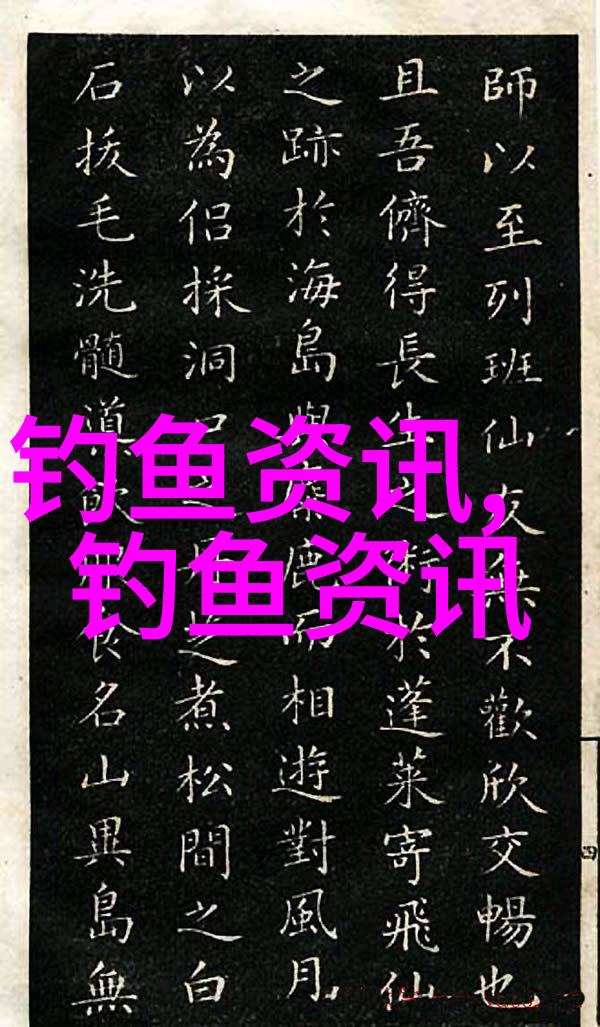 師以至列班仙友無不歡欣交暢也
且吾儕得長生之術於蓬萊寄飛仙
之跡於海島與麋鹿而相遊對風月
以為侶採洞口之異芝煮松間之白
石拔毛洗髓道飲食名山異島無
钓鱼资讯,
钓鱼资讯
四